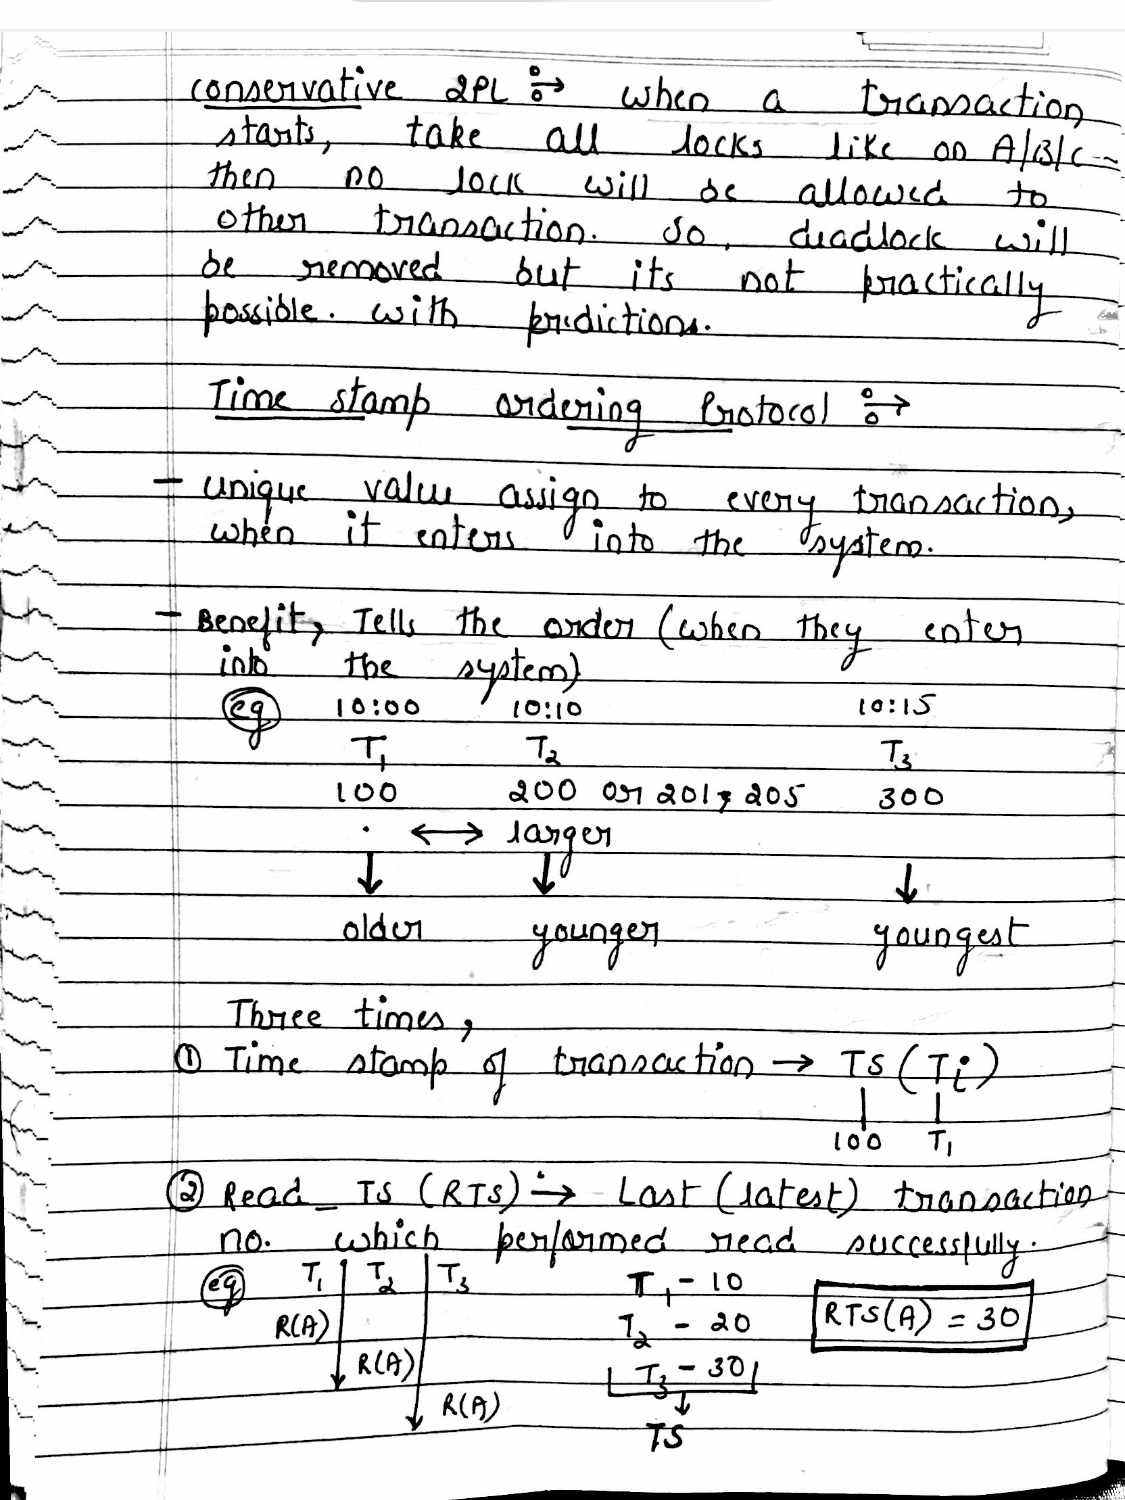 conservative 2PL : → when a transaction
starts, take all locks like on A/B/C -
then no lock will be allowed to
other transaction. So, deadlock will
be removed but its not practically
possible. with predictions.
Time stamp ordering Protocol : →
- unique value assign to every transaction,
when it enters into the system.
- Benefit, Tells the order (when they enter
into the system)
eg 10:00 10:10 10:15
T1 T2 T3
100 200 or 201, 205 300
. ↔ larger
↓ ↓ ↓
older younger youngest
Three times,
① Time stamp of transaction → TS (Ti)
100 T1
② Read_TS (RTS) : → Last (latest) transaction
no. which performed read successfully.
eg T1 T2 T3 T1 - 10
R(A) T2 - 20 RTS(A) = 30
R(A) T3 - 30
R(A) ↓
TS